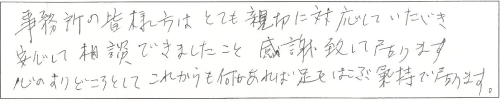 事務所の皆様方はとても親切に対応していただき
安心して相談できましたこと感謝致して居ります
心のよりどころとしてこれからも何かあれば足をはこぶ気持で居ります。